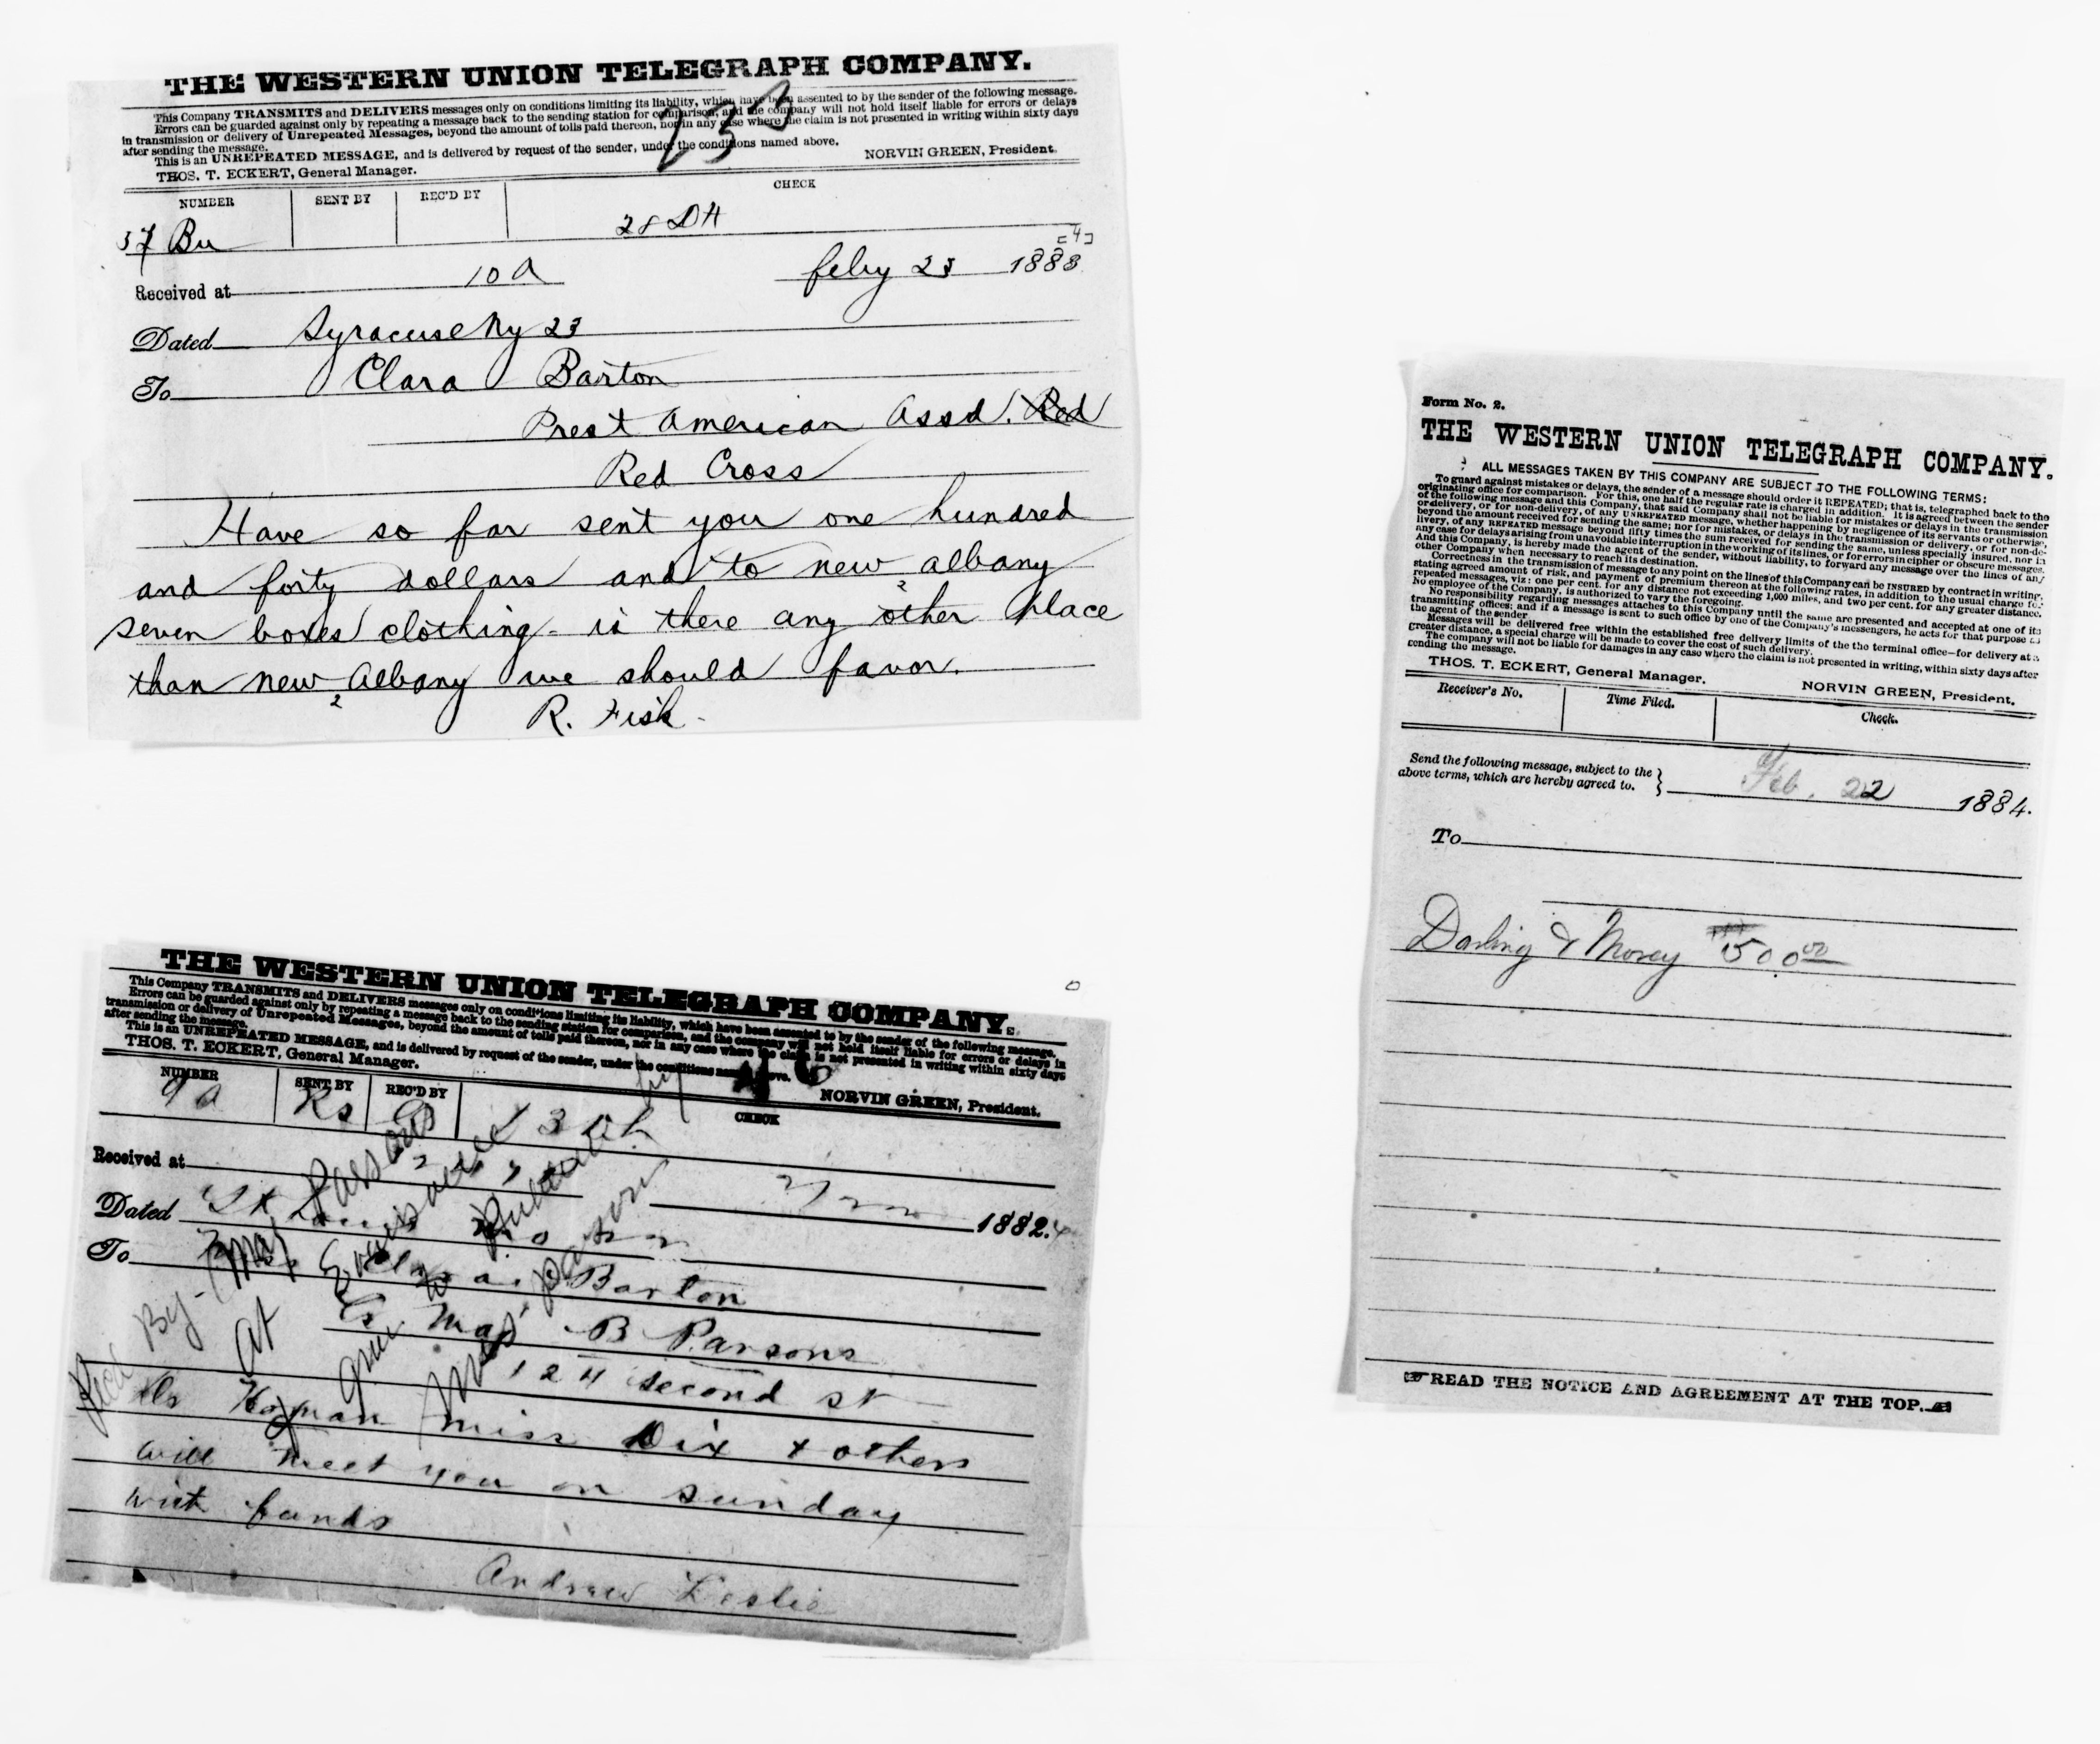 THE WESTERN UNION TELEGRAPH COMPANY.
This Company TRANSMITS and DELIVERS messages only on conditions limiting its liability, which have been assented to by the sender of the following message.
Errors can be guarded against only by repeating a message back to the sending station for comparison, and the company will not hold itself liable for errors or delays
in transmission or delivery of Unrepeated Messages, beyond the amount of tolls paid thereon, nor in any case where the claim is not presented in writing within sixty days
after sending the message.
This is an UNREPEATED MESSAGE, and is delivered by request of the sender, under the conditions named above.
THOS. T. ECKERT, General Manager. NORVIN GREEN, President.
NUMBER SENT BY REC'D BY CHECK
37 Bu 28 DH
[4]
Received at 10 a feby 23 1888
Dated Syracuse Ny 23
To Clara Barton
Prest American Assd. Red
Red Cross
Have so far sent you one hundred
and forty dollars and to new albany
seven boxes clothing - is there any other place
than new Albany we should favor.
R. Fisk -
THE WESTERN UNION TELEGRAPH COMPANY.
This Company TRANSMITS and DELIVERS messages only on conditions limiting its liability, which have been assented to by the sender of the following message.
Errors can be guarded against only by repeating a message back to the sending station for comparison, and the company will not hold itself liable for errors or delays in
transmission or delivery of Unrepeated Messages, beyond the amount of tolls paid thereon, nor in any case where the claim is not presented in writing within sixty days
after sending the message.
This is an UNREPEATED MESSAGE, and is delivered by request of the sender, under the conditions named above.
THOS. T. ECKERT, General Manager. NORVIN GREEN, President.
NUMBER SENT BY REC'D BY CHECK
9 a Rs
Received at
Dated St Louis Mo 1882.4
To Clara Barton
Cr Maj B Parsons
124 second st
Dr Hayman miss Dix + others
will meet you on sunday
with funds
Andrew Leslie
Recd By - Parsons
at Evansville
Mrs. parson
Form No. 2.
THE WESTERN UNION TELEGRAPH COMPANY.
ALL MESSAGES TAKEN BY THIS COMPANY ARE SUBJECT TO THE FOLLOWING TERMS:
To guard against mistakes or delays, the sender of a message should order it REPEATED; that is, telegraphed back to the
originating office for comparison. For this, one half the regular rate is charged in addition. It is agreed between the sender
of the following message and this Company, that said Company shall not be liable for mistakes or delays in the transmission
or delivery, or for non-delivery, of any UNREPEATED message, whether happening by negligence of its servants or otherwise,
beyond the amount received for sending the same; nor for mistakes, or delays in the transmission or delivery, or for non-de-
livery, of any REPEATED message beyond fifty times the sum received for sending the same, unless specially insured, nor in
any case for delays arising from unavoidable interruption in the working of its lines, or for errors in cipher or obscure messages.
And this Company, is hereby made the agent of the sender, without liability, to forward any message over the lines of any
other Company when necessary to reach its destination.
Correctness in the transmission of message to any point on the lines of this Company can be INSURED by contract in writing,
stating agreed amount of risk, and payment of premium thereon at the following rates, in addition to the usual charge for
repeated messages, viz: one per cent. for any distance not exceeding 1,000 miles, and two per cent. for any greater distance.
No employee of the Company, is authorized to vary the foregoing.
No responsibility regarding messages attaches to this Company until the same are presented and accepted at one of its
transmitting offices; and if a message is sent to such office by one of the Company's messengers, he acts for that purpose as
the agent of the sender.
Messages will be delivered free within the established free delivery limits of the the terminal office—for delivery at a
greater distance, a special charge will be made to cover the cost of such delivery.
The company will not be liable for damages in any case where the claim is not presented in writing, within sixty days after
sending the message.
THOS. T. ECKERT, General Manager. NORVIN GREEN, President.
Receiver's No. Time Filed. Check.
Send the following message, subject to the
above terms, which are hereby agreed to. Feb. 22 1884.
To
Darling & Morey 500.00
READ THE NOTICE AND AGREEMENT AT THE TOP.